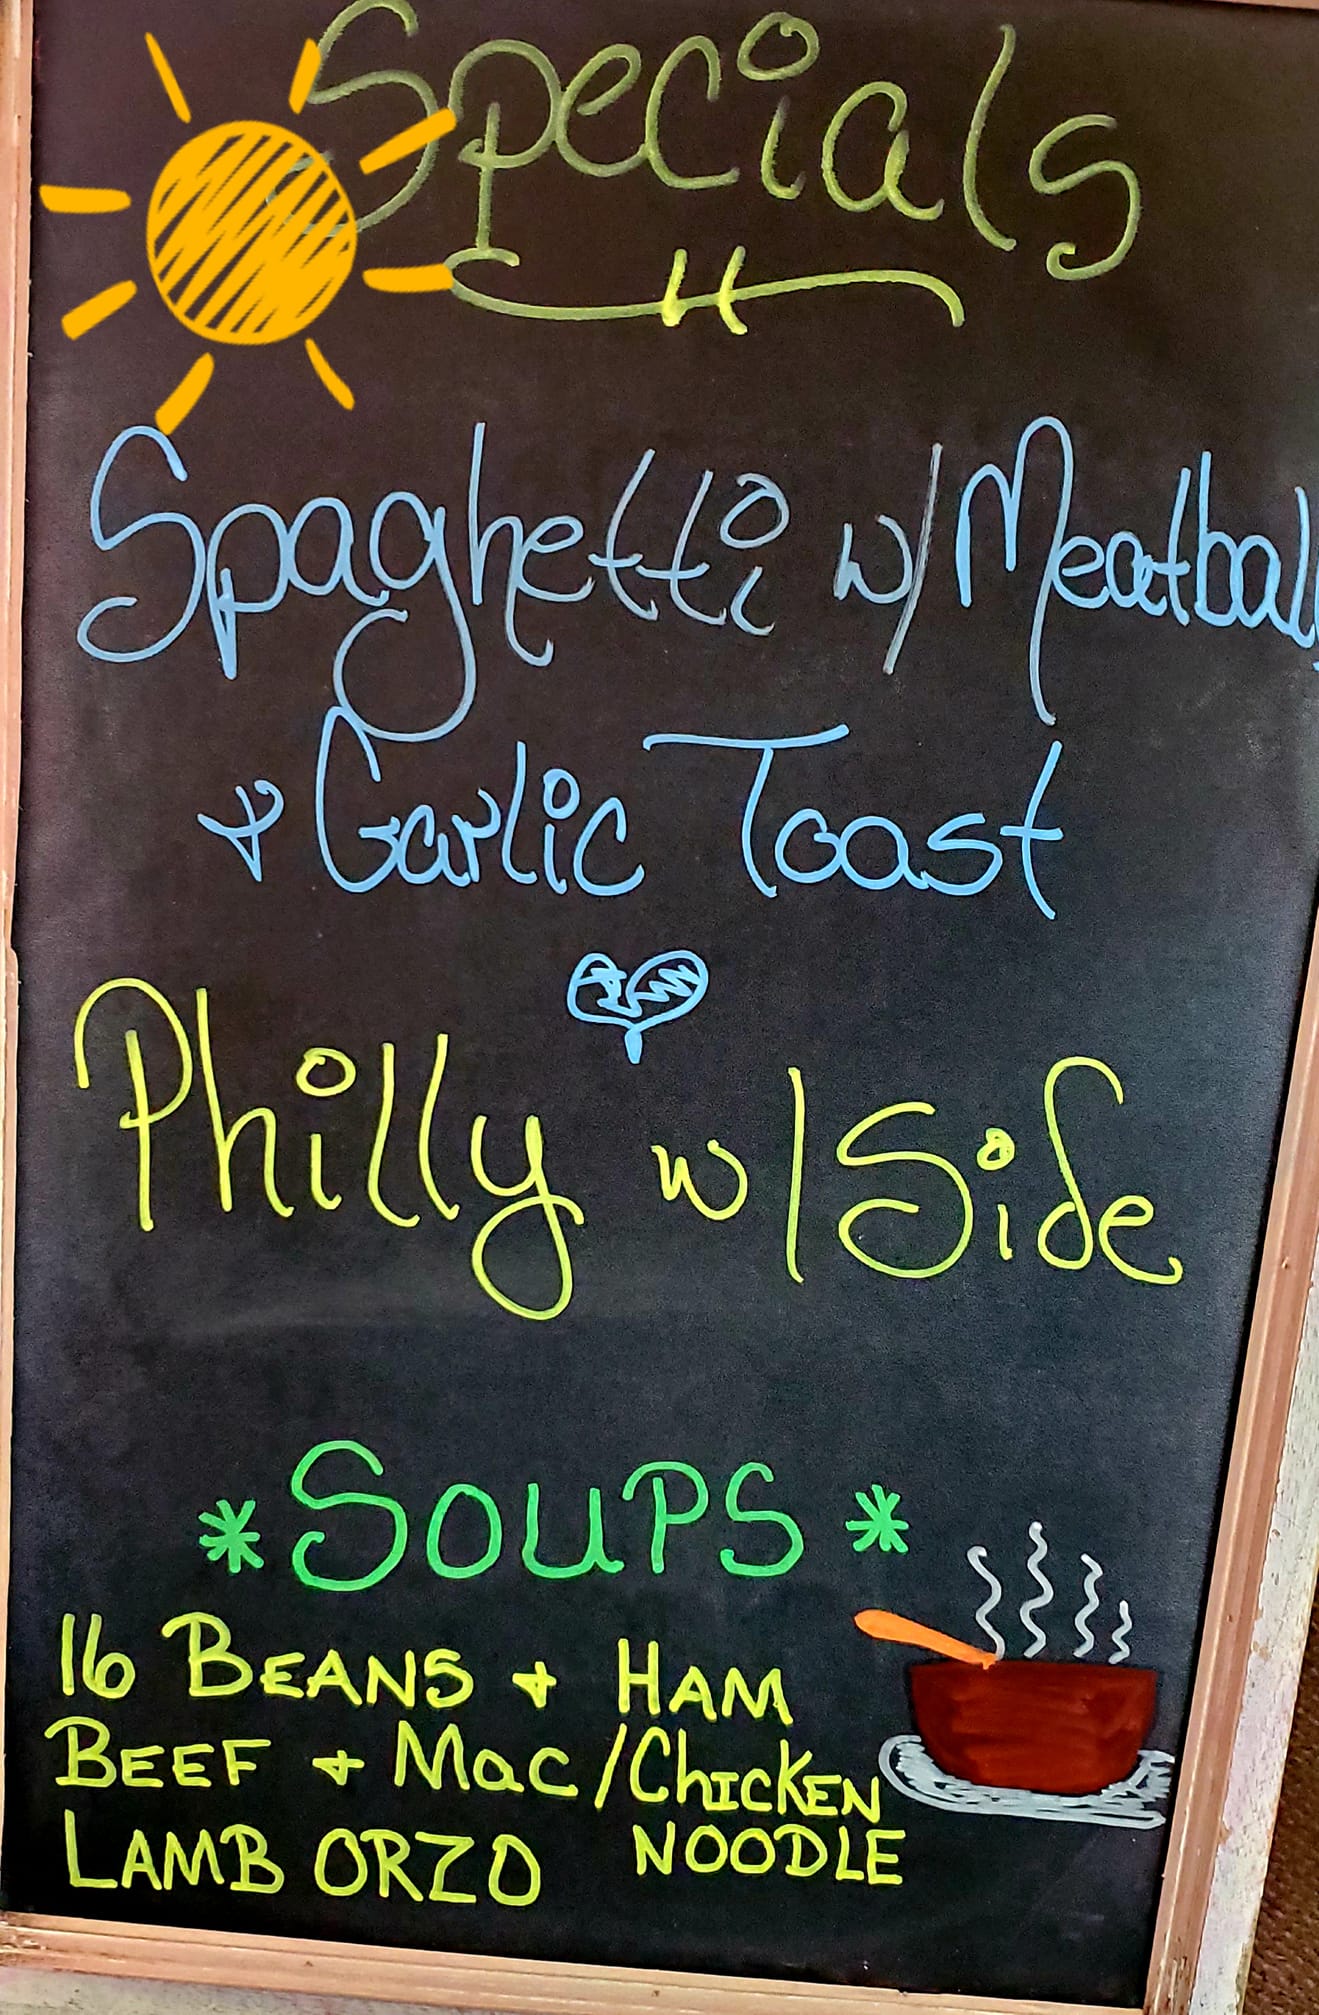 Specials
Spaghetti w/ Meatballs
& Garlic Toast
Philly w/ Side
* SOUPS *
16 BEANS & HAM
BEEF & MAC / CHICKEN
LAMB ORZO NOODLE